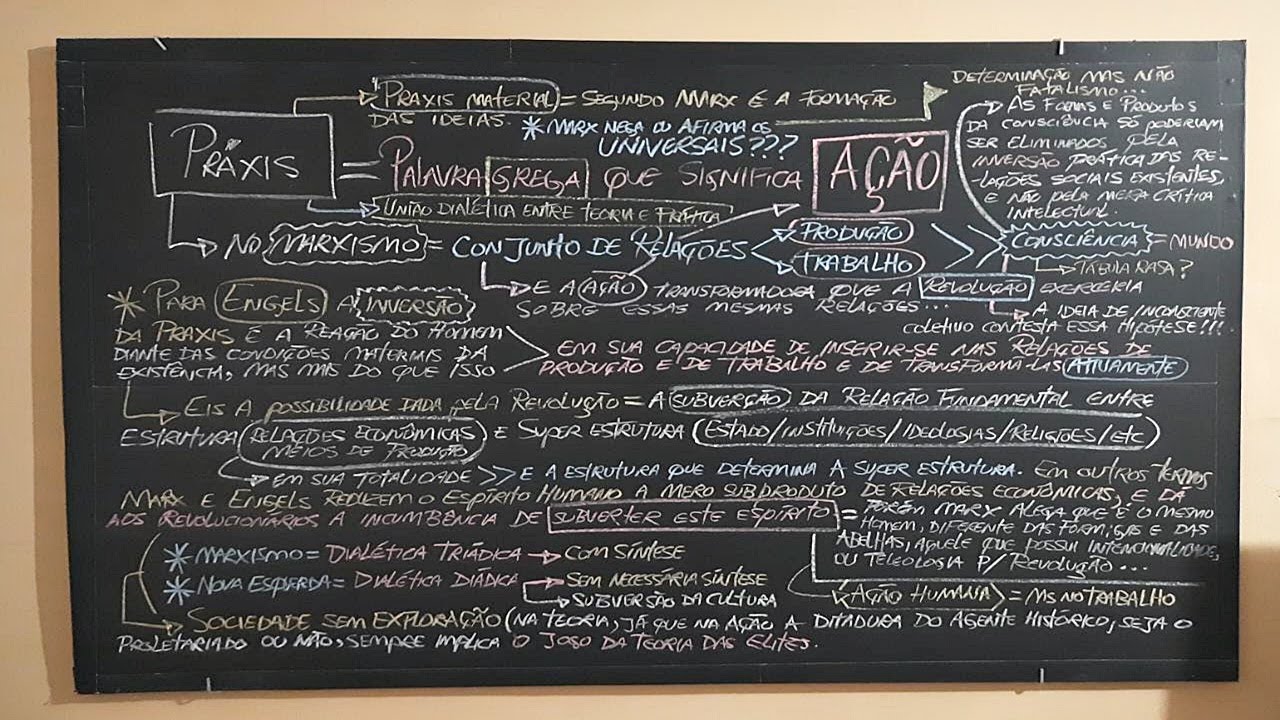 PRAXIS MATERIAL = SEGUNDO MARX É A FORMAÇÃO
DAS IDEIAS. * MARX NEGA OU AFIRMA OS
UNIVERSAIS???
DETERMINAÇÃO, MAS NÃO
FATALISMO...
AS FORMAS E PRODUTOS
DA CONSCIÊNCIA SÓ PODERIAM
SER ELIMINADOS PELA
INVERSÃO PRÁTICA DAS RE-
-LAÇÕES SOCIAIS EXISTENTES,
E NÃO PELA MERA CRÍTICA
INTELECTUAL.
PRÁXIS = PALAVRA GREGA QUE SIGNIFICA AÇÃO
UNIÃO DIALÉTICA ENTRE TEORIA E PRÁTICA
NO MARXISMO = CONJUNTO DE RELAÇÕES
PRODUÇÃO
TRABALHO
CONSCIÊNCIA = MUNDO
TÁBULA RASA?
E A AÇÃO TRANSFORMADORA QUE A REVOLUÇÃO EXERCERIA
SOBRE ESSAS MESMAS RELAÇÕES...
A IDEIA DE INCONSCIENTE
COLETIVO CONTESTA ESSA HIPÓTESE!!!
* PARA ENGELS A INVERSÃO
DA PRAXIS É A REAÇÃO DO HOMEM
DIANTE DAS CONDIÇÕES MATERIAIS DA
EXISTÊNCIA, MAS MAIS DO QUE ISSO
EM SUA CAPACIDADE DE INSERIR-SE NAS RELAÇÕES DE
PRODUÇÃO E DE TRABALHO E DE TRANSFORMA-LAS ATIVAMENTE
EIS A POSSIBILIDADE DADA PELA REVOLUÇÃO = A SUBVERÇÃO DA RELAÇÃO FUNDAMENTAL ENTRE
ESTRUTURA (RELAÇÕES ECONÔMICAS
MEIOS DE PRODUÇÃO) E SUPER ESTRUTURA (ESTADO/INSTITUIÇÕES/IDEOLOGIAS/RELIGIÕES/ETC)
EM SUA TOTALIDADE >> E A ESTRUTURA QUE DETERMINA A SUPER ESTRUTURA. EM OUTROS TERMOS
MARX E ENGELS REDUZEM O ESPÍRITO HUMANO A MERO SUBPRODUTO DE RELAÇÕES ECONÔMICAS, E DÁ
AOS REVOLUCIONÁRIOS A INCUMBÊNCIA DE SUBVERTER ESTE ESPÍRITO = PORÉM MARX ALEGA QUE É O MESMO
HOMEM, DIFERENTE DAS FORMIGAS E DAS
ABELHAS, AQUELE QUE POSSUI INTENCIONALIDADE,
OU TELEOLOGIA P/ REVOLUÇÃO...
* MARXISMO = DIALÉTICA TRIÁDICA → COM SÍNTESE
* NOVA ESQUERDA = DIALÉTICA DIÁDICA → SEM NECESSÁRIA SÍNTESE
→ SUBVERSÃO DA CULTURA
AÇÃO HUMANA = MS NO TRABALHO
SOCIEDADE SEM EXPLORAÇÃO (NA TEORIA, JÁ QUE NA AÇÃO A DITADURA DO AGENTE HISTÓRICO, SEJA O
PROLETARIADO OU NÃO, SEMPRE IMPLICA O JOGO DA TEORIA DAS ELITES.